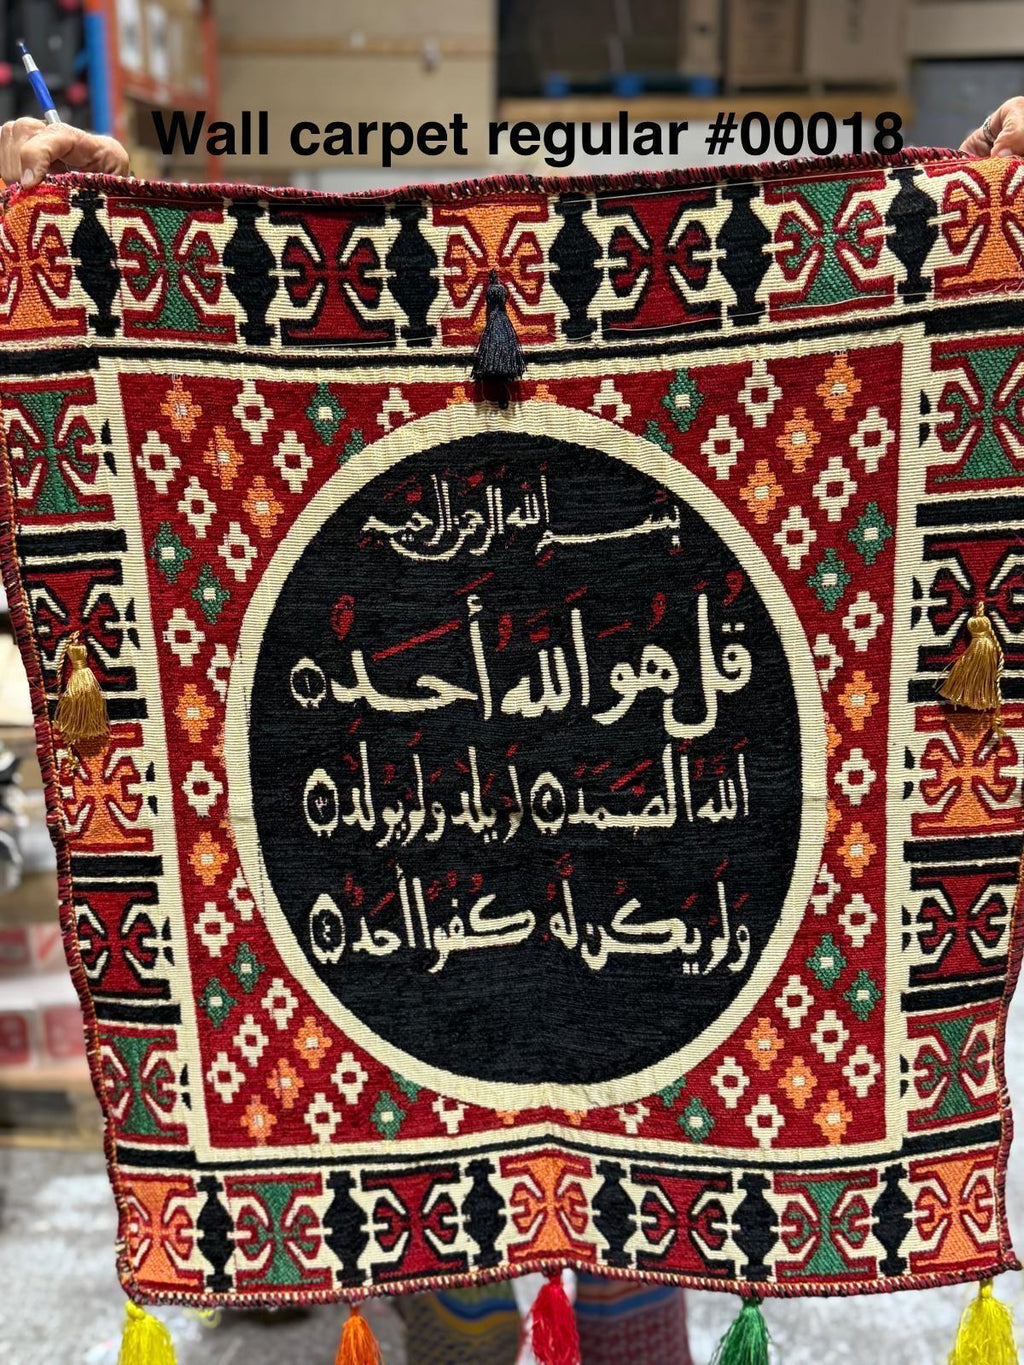 Wall carpet regular #00018
بسم الله الرحمن الرحيم
قُلْ هُوَ اللَّهُ أَحَدٌ ١
اللَّه الصَّمَدُ ٢ لَمْ يَلِدْ وَلَمْ يُولَدْ ٣
وَلَمْ يَكُن لَّهُ كُفُوًا أَحَدٌ ٤